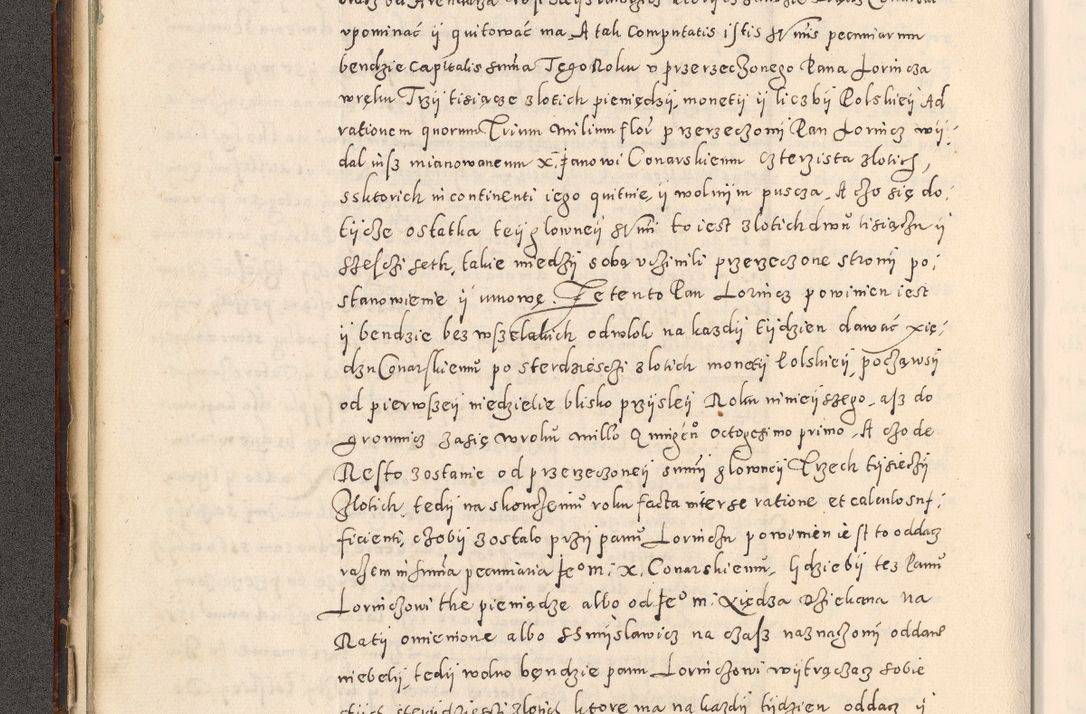 vpominać ÿ quitować ma, A tak Computatis istis sum̃is pecuniarum
bendzie Capitalis sum̃a Tego Roku v przerzeczonego Pana Lorincza
wręku Trzÿ tisiącze zlotich pieniędzÿ, monetÿ ÿ liczbÿ Polskieÿ Ad
rationem quorum Trium milium flor̃ przerzeczonÿ Pan Lorincz wÿ-
dal uisz mianowanemu X. Janowi Conarskiemu czterzista zlotich,
ssktorich in continenti iego quitnie, ÿ wolnÿm puscza. A czo się do-
tÿcze ostatka teÿ glowneÿ sum̃i to iest zlotich dwu tisiączu ÿ
szesczi seth, takie miedzÿ sobą vczinili przerzeczone stronÿ po-
stanowienie ÿ umowę. Ze tento Pan Lorincz powinien iest
ÿ bendzie bez wszelakich odwlok na kazdÿ tÿdzien dawać xię-
dzu Conarskiemu po sterdziesczi zlotich monetÿ Polskieÿ, począwsÿ
od pierwszeÿ niedzielie blisko przÿsleÿ Roku ninieÿszego, asz do
gromnicz zasię w roku millo Quingen̄ octogesimo primo, A czo de
Resto zostanie od przerzeczoneÿ summÿ glowneÿ Trzech tÿsieczÿ
Zlotich, tedÿ na skonczeniu roku facta inter se ratione et calculo suf-
ficienti, czobÿ zostalo przÿ panu Lorinczu powinien iest to oddacz
razem in summa pecuniaria Jeo m. X. Conarskiemu, Gdziebÿ tez Panu
Lorinczowi the pieniądze albo od Jeo m. Xiędza Dziekana na
Ratÿ omienione albo ss mÿslawicz na czasz naznaczonÿ oddane
niebelÿ, tedÿ wolno bęndzie panu Lorinczowi wÿtrączacz sobie
zlotich ktore ma na kazdÿ tÿdzien oddacz ÿ